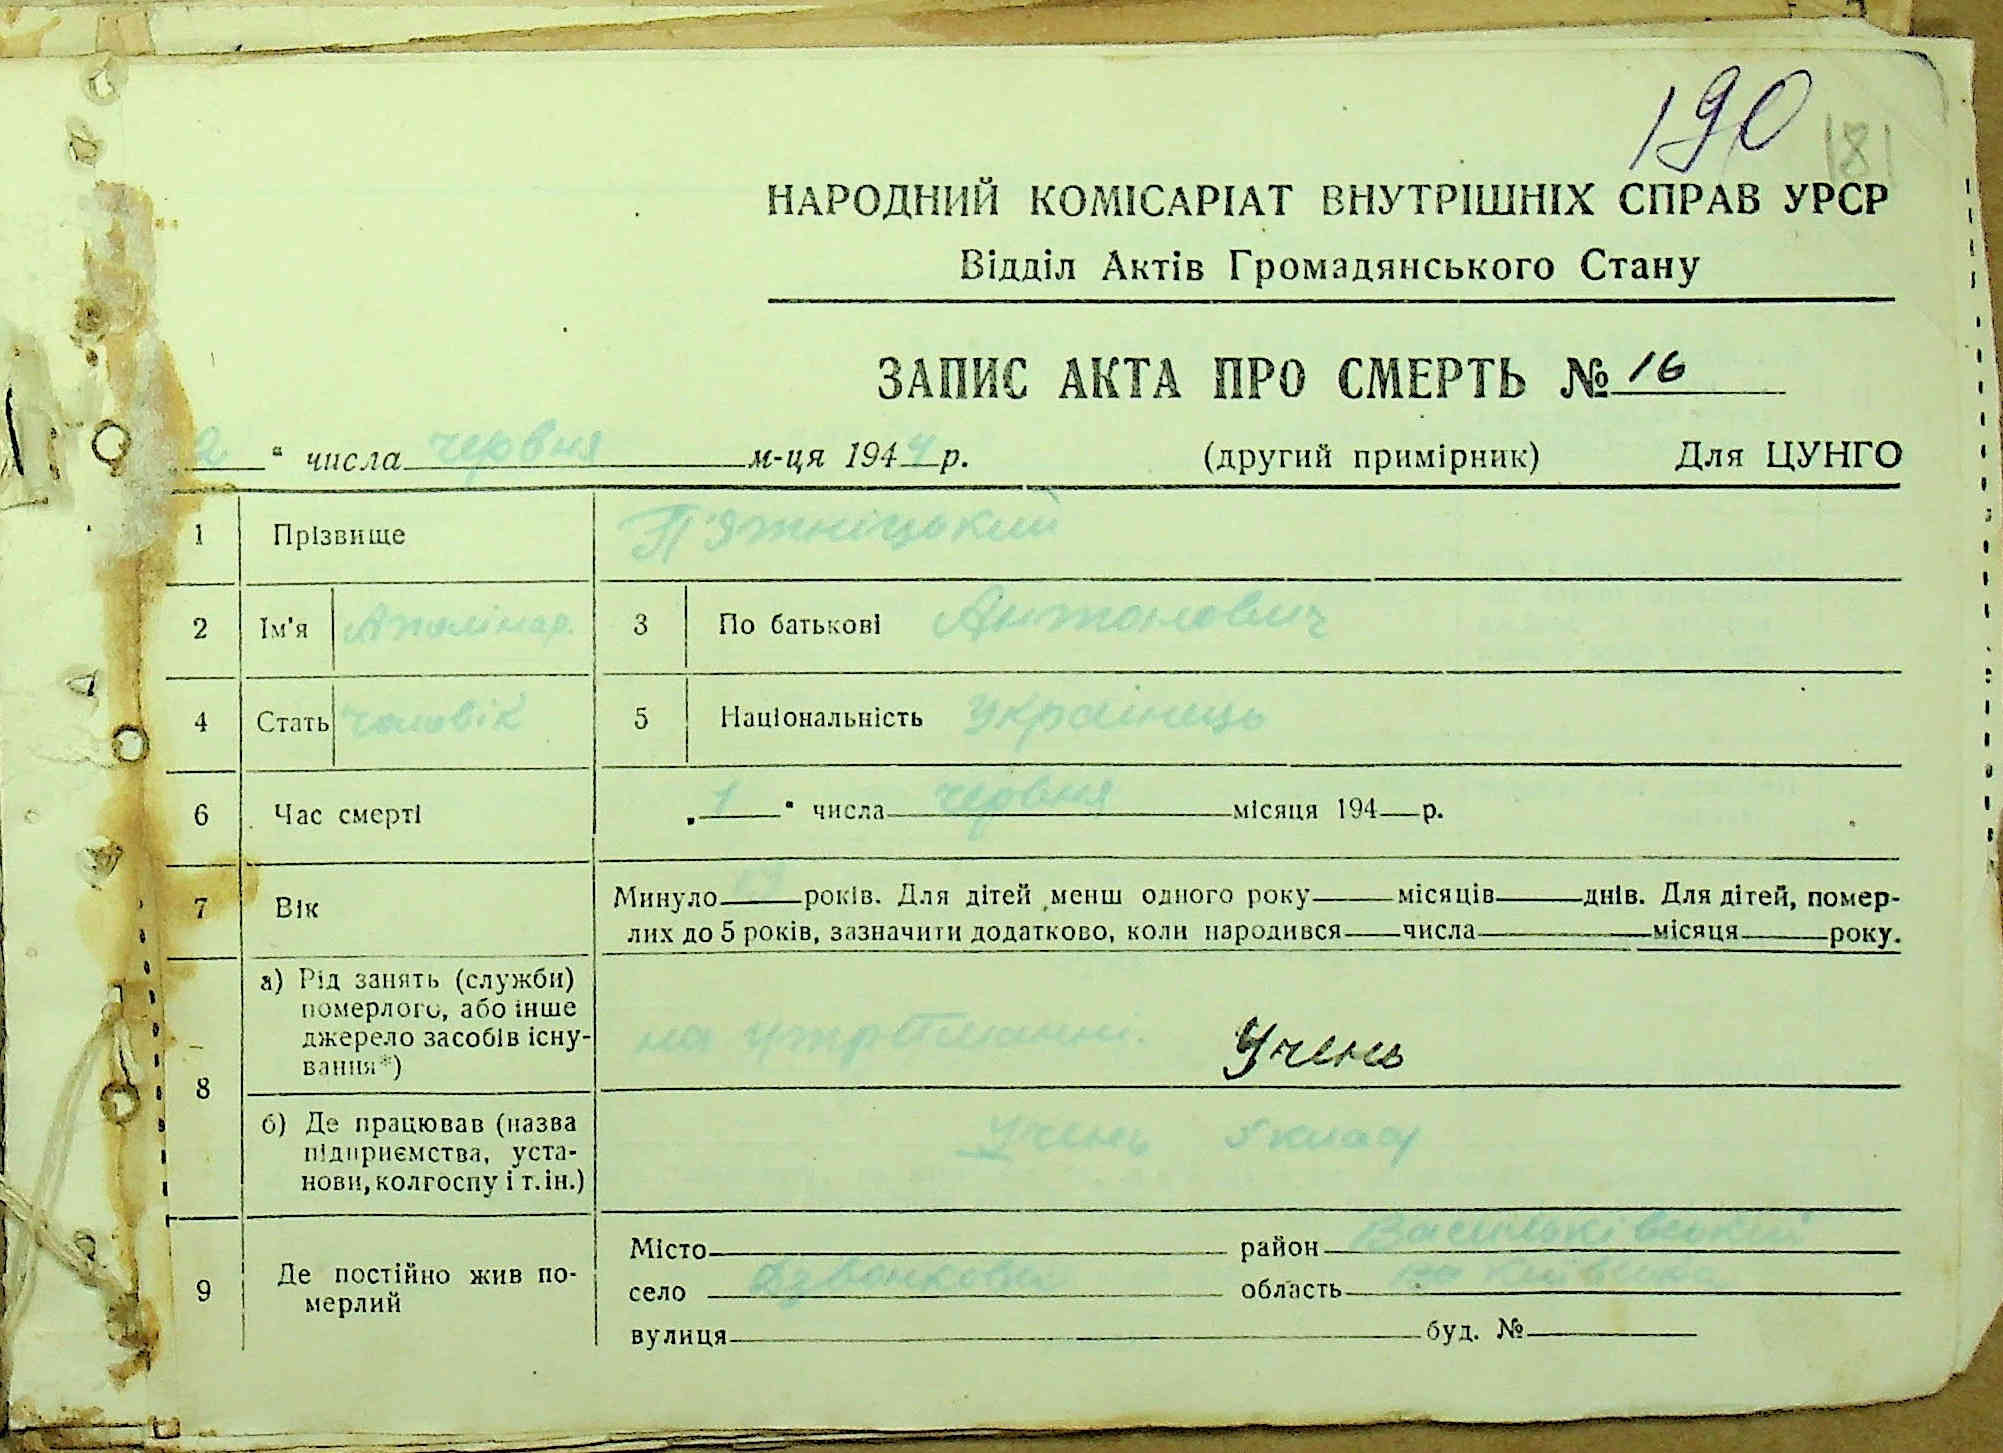 190
181
НАРОДНИЙ КОМІСАРІАТ ВНУТРІШНІХ СПРАВ УРСР
Відділ Актів Громадянського Стану
ЗАПИС АКТА ПРО СМЕРТЬ № 16
2 " числа червня м-ця 1944 р. (другий примірник) Для ЦУНГО
1 Прізвище П'ятніцький
2 Ім'я Аполінар. 3 По батькові Антонович
4 Стать чоловік 5 Національність Українець
6 Час смерті „ 1 " числа червня місяця 194 р.
7 Вік Минуло 13 років. Для дітей менш одного року місяців днів. Для дітей, помер-
лих до 5 років, зазначити додатково, коли народився числа місяця року.
8 а) Рід занять (служби)
померлого, або інше
джерело засобів існу-
вання*)
на утриманні. Учень
б) Де працював (назва
підприємства, уста-
нови, колгоспу і т. ін.)
Учень 5 класу
9 Де постійно жив по-
мерлий
Місто район Васильківський
село Дзвонкова область Київська
вулиця буд. №